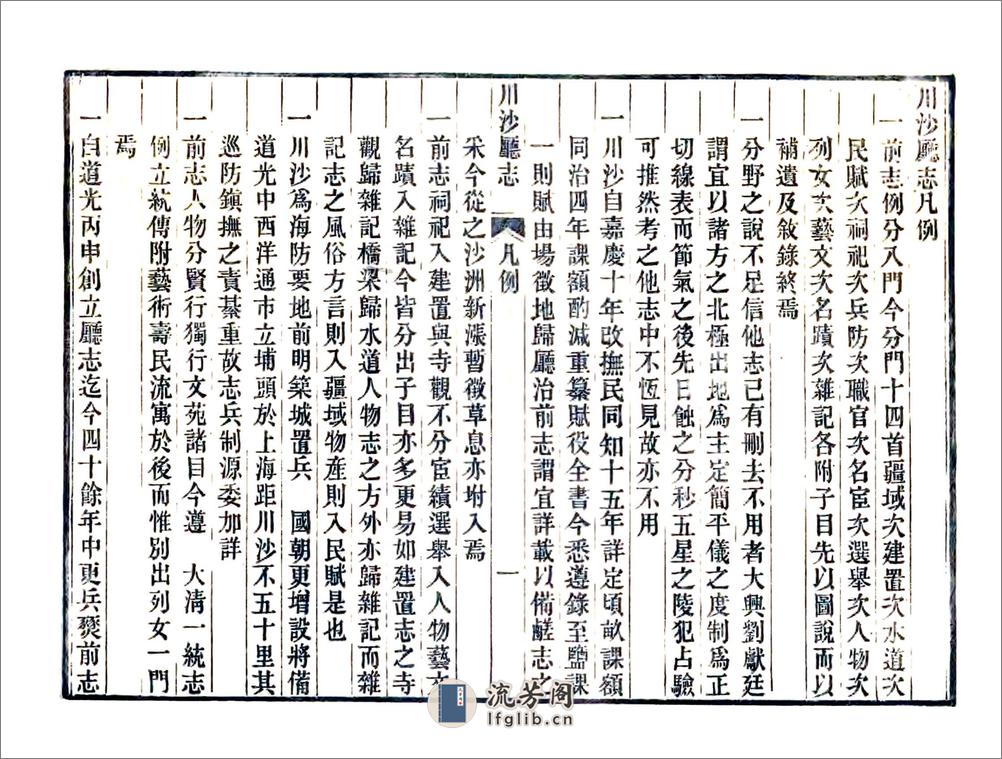 川沙廳志凡例
一前志例分八門今分門十四首疆域次建置次水道次
民賦次祠祀次兵防次職官次名宦次選舉次人物次
列女次藝文次名蹟次雜記各附子目先以圖說而以
補遺及敘錄終焉
一分野之說不足信他志已有刪去不用者大興劉獻廷
謂宜以諸方之北極出地為主定簡平儀之度制為正
切線表而節氣之後先日蝕之分秒五星之陵犯占驗
可推然考之他志中不恆見故亦不用
一川沙自嘉慶十年改撫民同知十五年詳定頃畝課額
同治四年課額酌減重纂賦役全書今悉遵錄至鹽課
一則賦由場徵地歸廳治前志謂宜詳載以備鹺志之
川沙廳志
凡例
一
采今從之沙洲新漲暫徵草息亦坿入焉
一前志祠祀入建置與寺觀不分宦績選舉入人物藝文
名蹟入雜記今皆分出子目亦多更易如建置志之寺
觀歸雜記橋梁歸水道人物志之方外亦歸雜記而雜
記志之風俗方言則入疆域物產則入民賦是也
一川沙為海防要地前明築城置兵 國朝更增設將備
道光中西洋通市立埔頭於上海距川沙不五十里其
巡防鎮撫之責綦重故志兵制源委加詳
一前志人物分賢行獨行文苑諸目今遵 大清一統志
例立統傳附藝術壽民流寓於後而惟別出列女一門
焉
一自道光丙申創立廳志迄今四十餘年中更兵燹前志
流芳阁
lfglib.cn